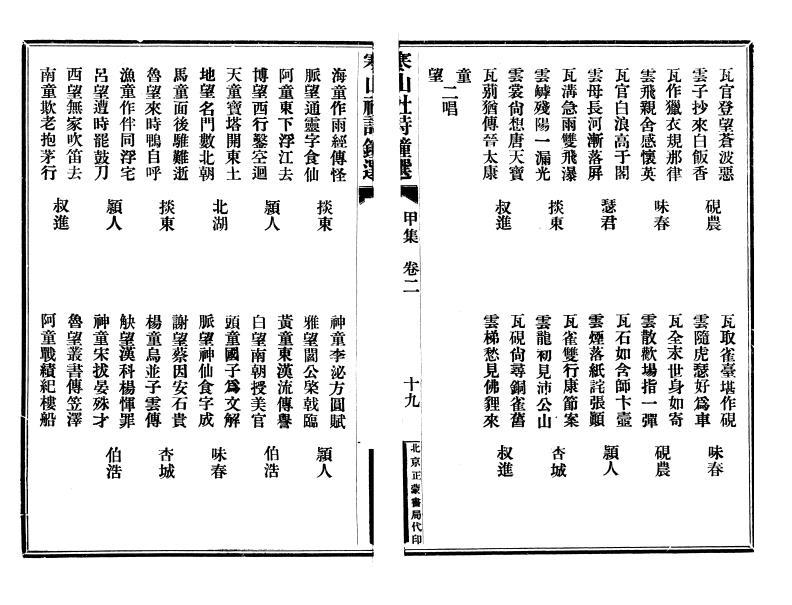 瓦官登望蒼波惡
雲子抄來白飯香
硯農
瓦取雀臺堪作硯
雲隨虎瑟好爲車
味春
瓦作獵衣規那律
雲飛親舍感懷英
味春
瓦全末世身如寄
雲散歡場指一彈
硯農
瓦官白浪高于閣
雲母長河漸落屏
瑟君
瓦石如含師卞壼
雲煙落紙詫張顚
穎人
瓦溝急雨雙飛瀑
雲罅殘陽一漏光
掞東
瓦雀雙行康節案
雲龍初見沛公山
杏城
雲裳尙想唐天寶
瓦莂猶傳晉太康
叔進
瓦硯尙尋銅雀舊
雲梯愁見佛貍來
叔進
童望 二唱
寒山社詩鐘選 甲集 卷二 十九 北京正蒙書局代印
海童作雨經傳怪
脈望通靈字食仙
掞東
神童李泌方圓賦
雅望閎公棨戟臨
穎人
阿童東下浮江去
博望西行鑿空迴
穎人
黃童東漢流傳譽
白望南朝授美官
伯浩
天童寶塔開東土
地望名門數北朝
北湖
頭童國子爲文解
脈望神仙食字成
味春
馬童面後騅難逝
魯望來時鴨自呼
掞東
謝望蔡因安石貴
楊童烏並子雲傳
杏城
漁童作伴同浮宅
呂望遭時罷鼓刀
穎人
觖望漢科楊惲罪
神童宋拔晏殊才
伯浩
西望無家吹笛去
南童欺老抱茅行
叔進
魯望叢書傳笠澤
阿童戰績紀樓船